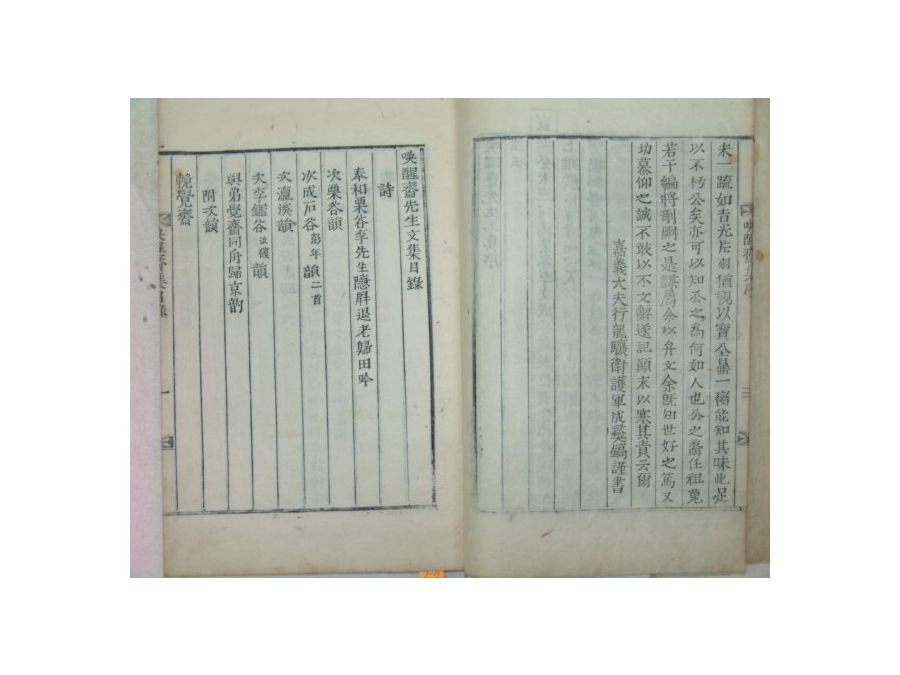 未一疏如吉光片羽猶視以寶全鼎一臠能知其味此足
以不朽公矣亦可以知公之爲何如人也公之喬任祖冕
若干編將剞劂之是謀屬余以弁文余旣知世好之篤又
切慕仰之誠不敢以不文辭遂記顚末以塞其責云爾
嘉義大夫行龍驤衛護軍成彛鎬謹書
喚醒齋先生文集目錄
詩
奉和栗谷李先生隱屛退老歸田吟
次栗谷韻
次成石谷彭年韻二首
次瀛溪韻
次李鑑谷汝馪韻
與弟覺齋同舟歸京韵
附次韻
輓覺齋
喚醒齋集目錄 一